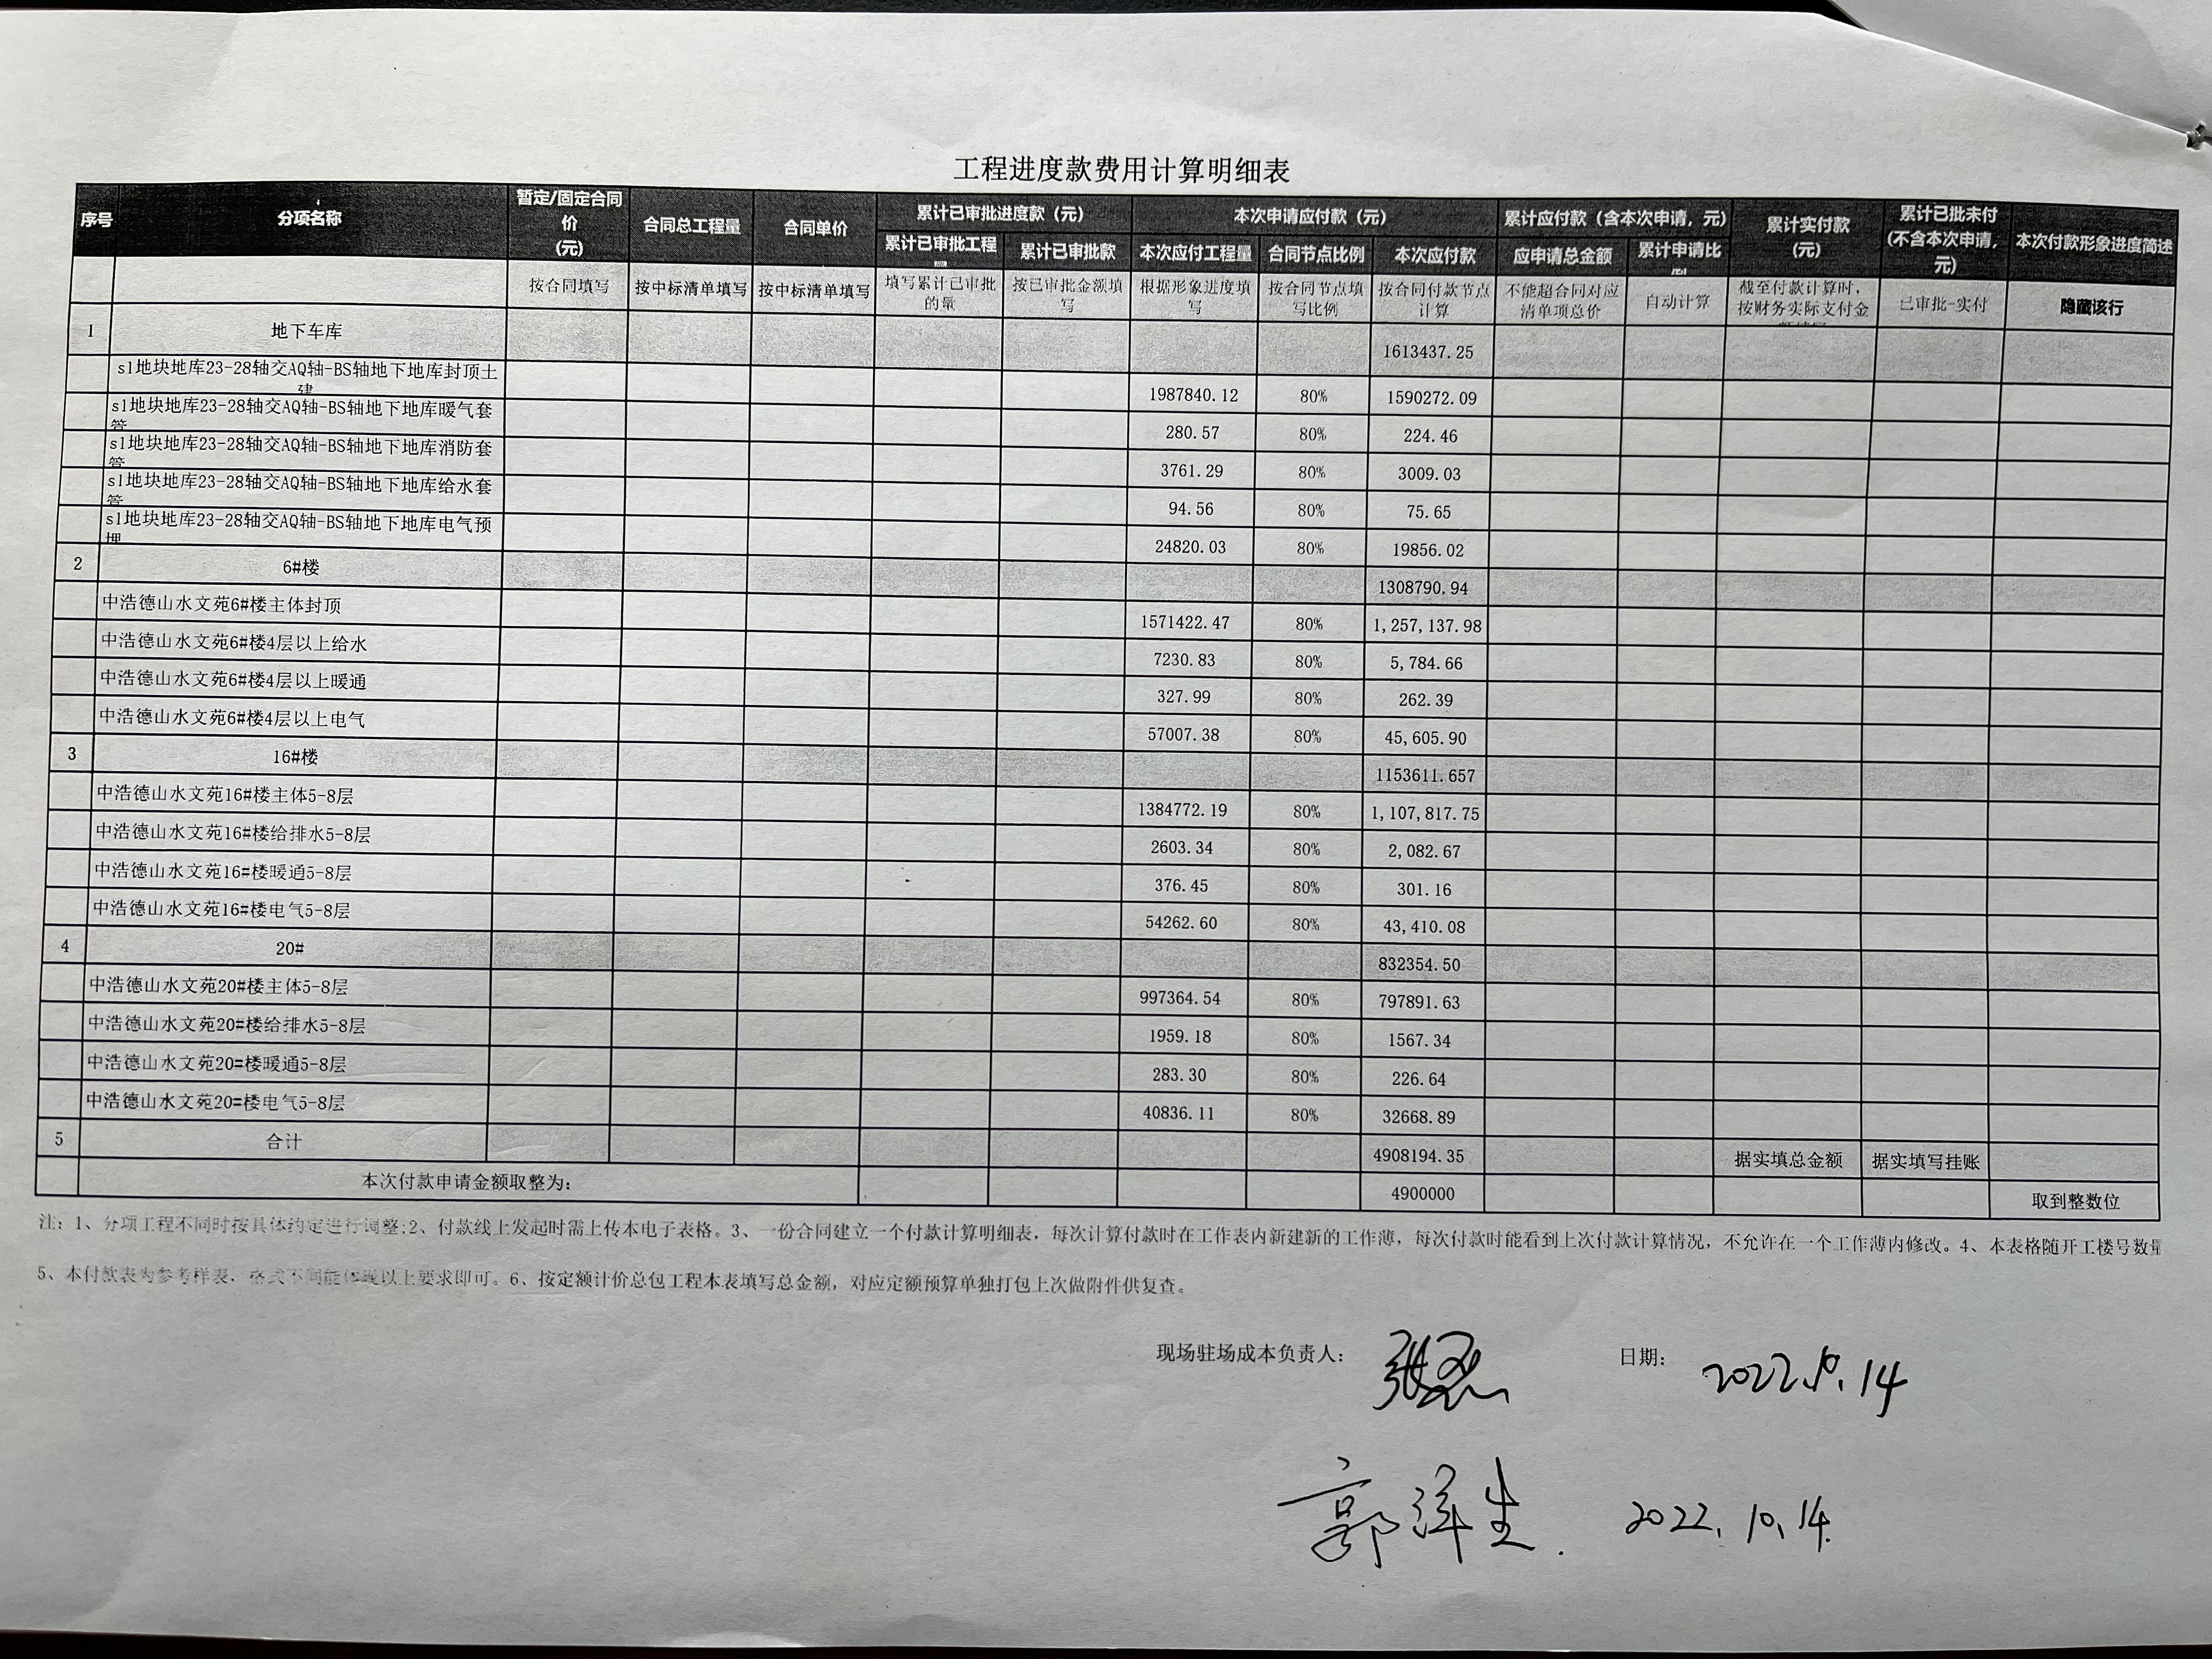 工程进度款费用计算明细表
序号 分项名称 暂定/固定合同价(元) 合同总工程量 合同单价 累计已审批进度款（元） 本次申请应付款（元） 累计应付款（含本次申请，元） 累计实付款(元) 累计已批未付(不含本次申请,元) 本次付款形象进度简述
累计已审批工程 累计已审批款 本次应付工程量 合同节点比例 本次应付款 应申请总金额 累计申请比
按合同填写 按中标清单填写 按中标清单填写 填写累计已审批的量 按已审批金额填写 根据形象进度填写 按合同节点填写比例 按合同付款节点计算 不能超合同对应清单项总价 自动计算 截至付款计算时，按财务实际支付金 已审批-实付 隐藏该行
1 地下车库 1613437.25
s1地块地库23-28轴交AQ轴-BS轴地下地库封顶土建 1987840.12 80% 1590272.09
s1地块地库23-28轴交AQ轴-BS轴地下地库暖气套管 280.57 80% 224.46
s1地块地库23-28轴交AQ轴-BS轴地下地库消防套管 3761.29 80% 3009.03
s1地块地库23-28轴交AQ轴-BS轴地下地库给水套管 94.56 80% 75.65
s1地块地库23-28轴交AQ轴-BS轴地下地库电气预埋 24820.03 80% 19856.02
2 6#楼 1308790.94
中浩德山水文苑6#楼主体封顶 1571422.47 80% 1,257,137.98
中浩德山水文苑6#楼4层以上给水 7230.83 80% 5,784.66
中浩德山水文苑6#楼4层以上暖通 327.99 80% 262.39
中浩德山水文苑6#楼4层以上电气 57007.38 80% 45,605.90
3 16#楼 1153611.657
中浩德山水文苑16#楼主体5-8层 1384772.19 80% 1,107,817.75
中浩德山水文苑16#楼给排水5-8层 2603.34 80% 2,082.67
中浩德山水文苑16#楼暖通5-8层 376.45 80% 301.16
中浩德山水文苑16#楼电气5-8层 54262.60 80% 43,410.08
4 20# 832354.50
中浩德山水文苑20#楼主体5-8层 997364.54 80% 797891.63
中浩德山水文苑20#楼给排水5-8层 1959.18 80% 1567.34
中浩德山水文苑20#楼暖通5-8层 283.30 80% 226.64
中浩德山水文苑20#楼电气5-8层 40836.11 80% 32668.89
5 合计 4908194.35 据实填总金额 据实填写挂账
本次付款申请金额取整为： 4900000 取到整数位
注：1、分项工程不同时按具体约定进行调整;2、付款线上发起时需上传本电子表格。3、一份合同建立一个付款计算明细表，每次计算付款时在工作表内新建新的工作薄，每次付款时能看到上次付款计算情况，不允许在一个工作薄内修改。4、本表格随开工楼号数量
5、本付款表为参考样表，格式不同能体现以上要求即可。6、按定额计价总包工程本表填写总金额，对应定额预算单独打包上次做附件供复查。
现场驻场成本负责人： 日期： 2022.10.14
郭洋生. 2022.10.14.